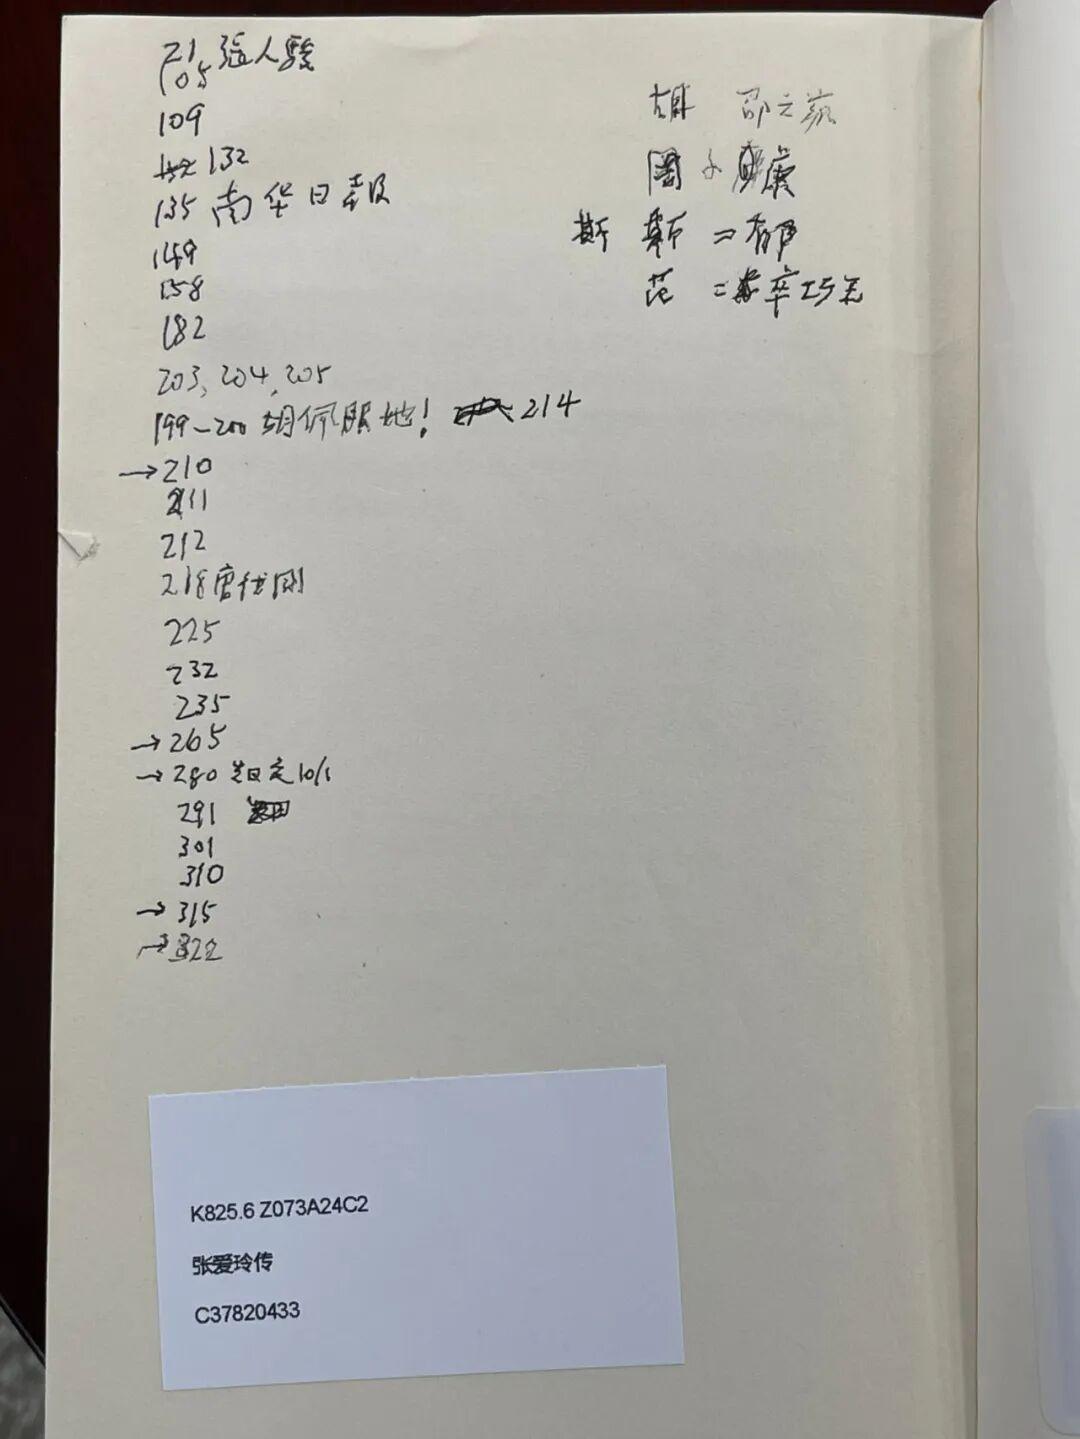 21 張人駿
105
109
132
135 南华日報
149
158
182
203, 204, 205
199-200 胡佩服她! 214
→210
211
212
218 唐代
225
232
235
→265
→280 10/1
291
301
310
→315
→322
胡 邵之
闵
斯 斯 = 郁
范 = 辛巧玉
K825.6 Z073A24C2
张爱玲传
C37820433